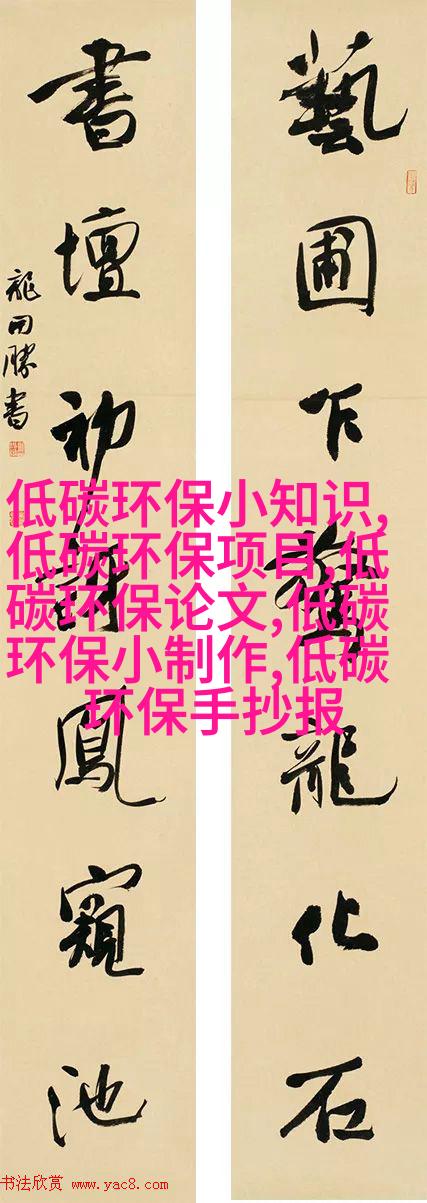 藝圃乍龍化石
書壇初鳳窺池
龍開勝書
低碳环保小知识,
低碳环保项目,低
碳环保论文,低碳
环保小制作,低碳
环保手抄报
书法欣赏 www.yac8.com